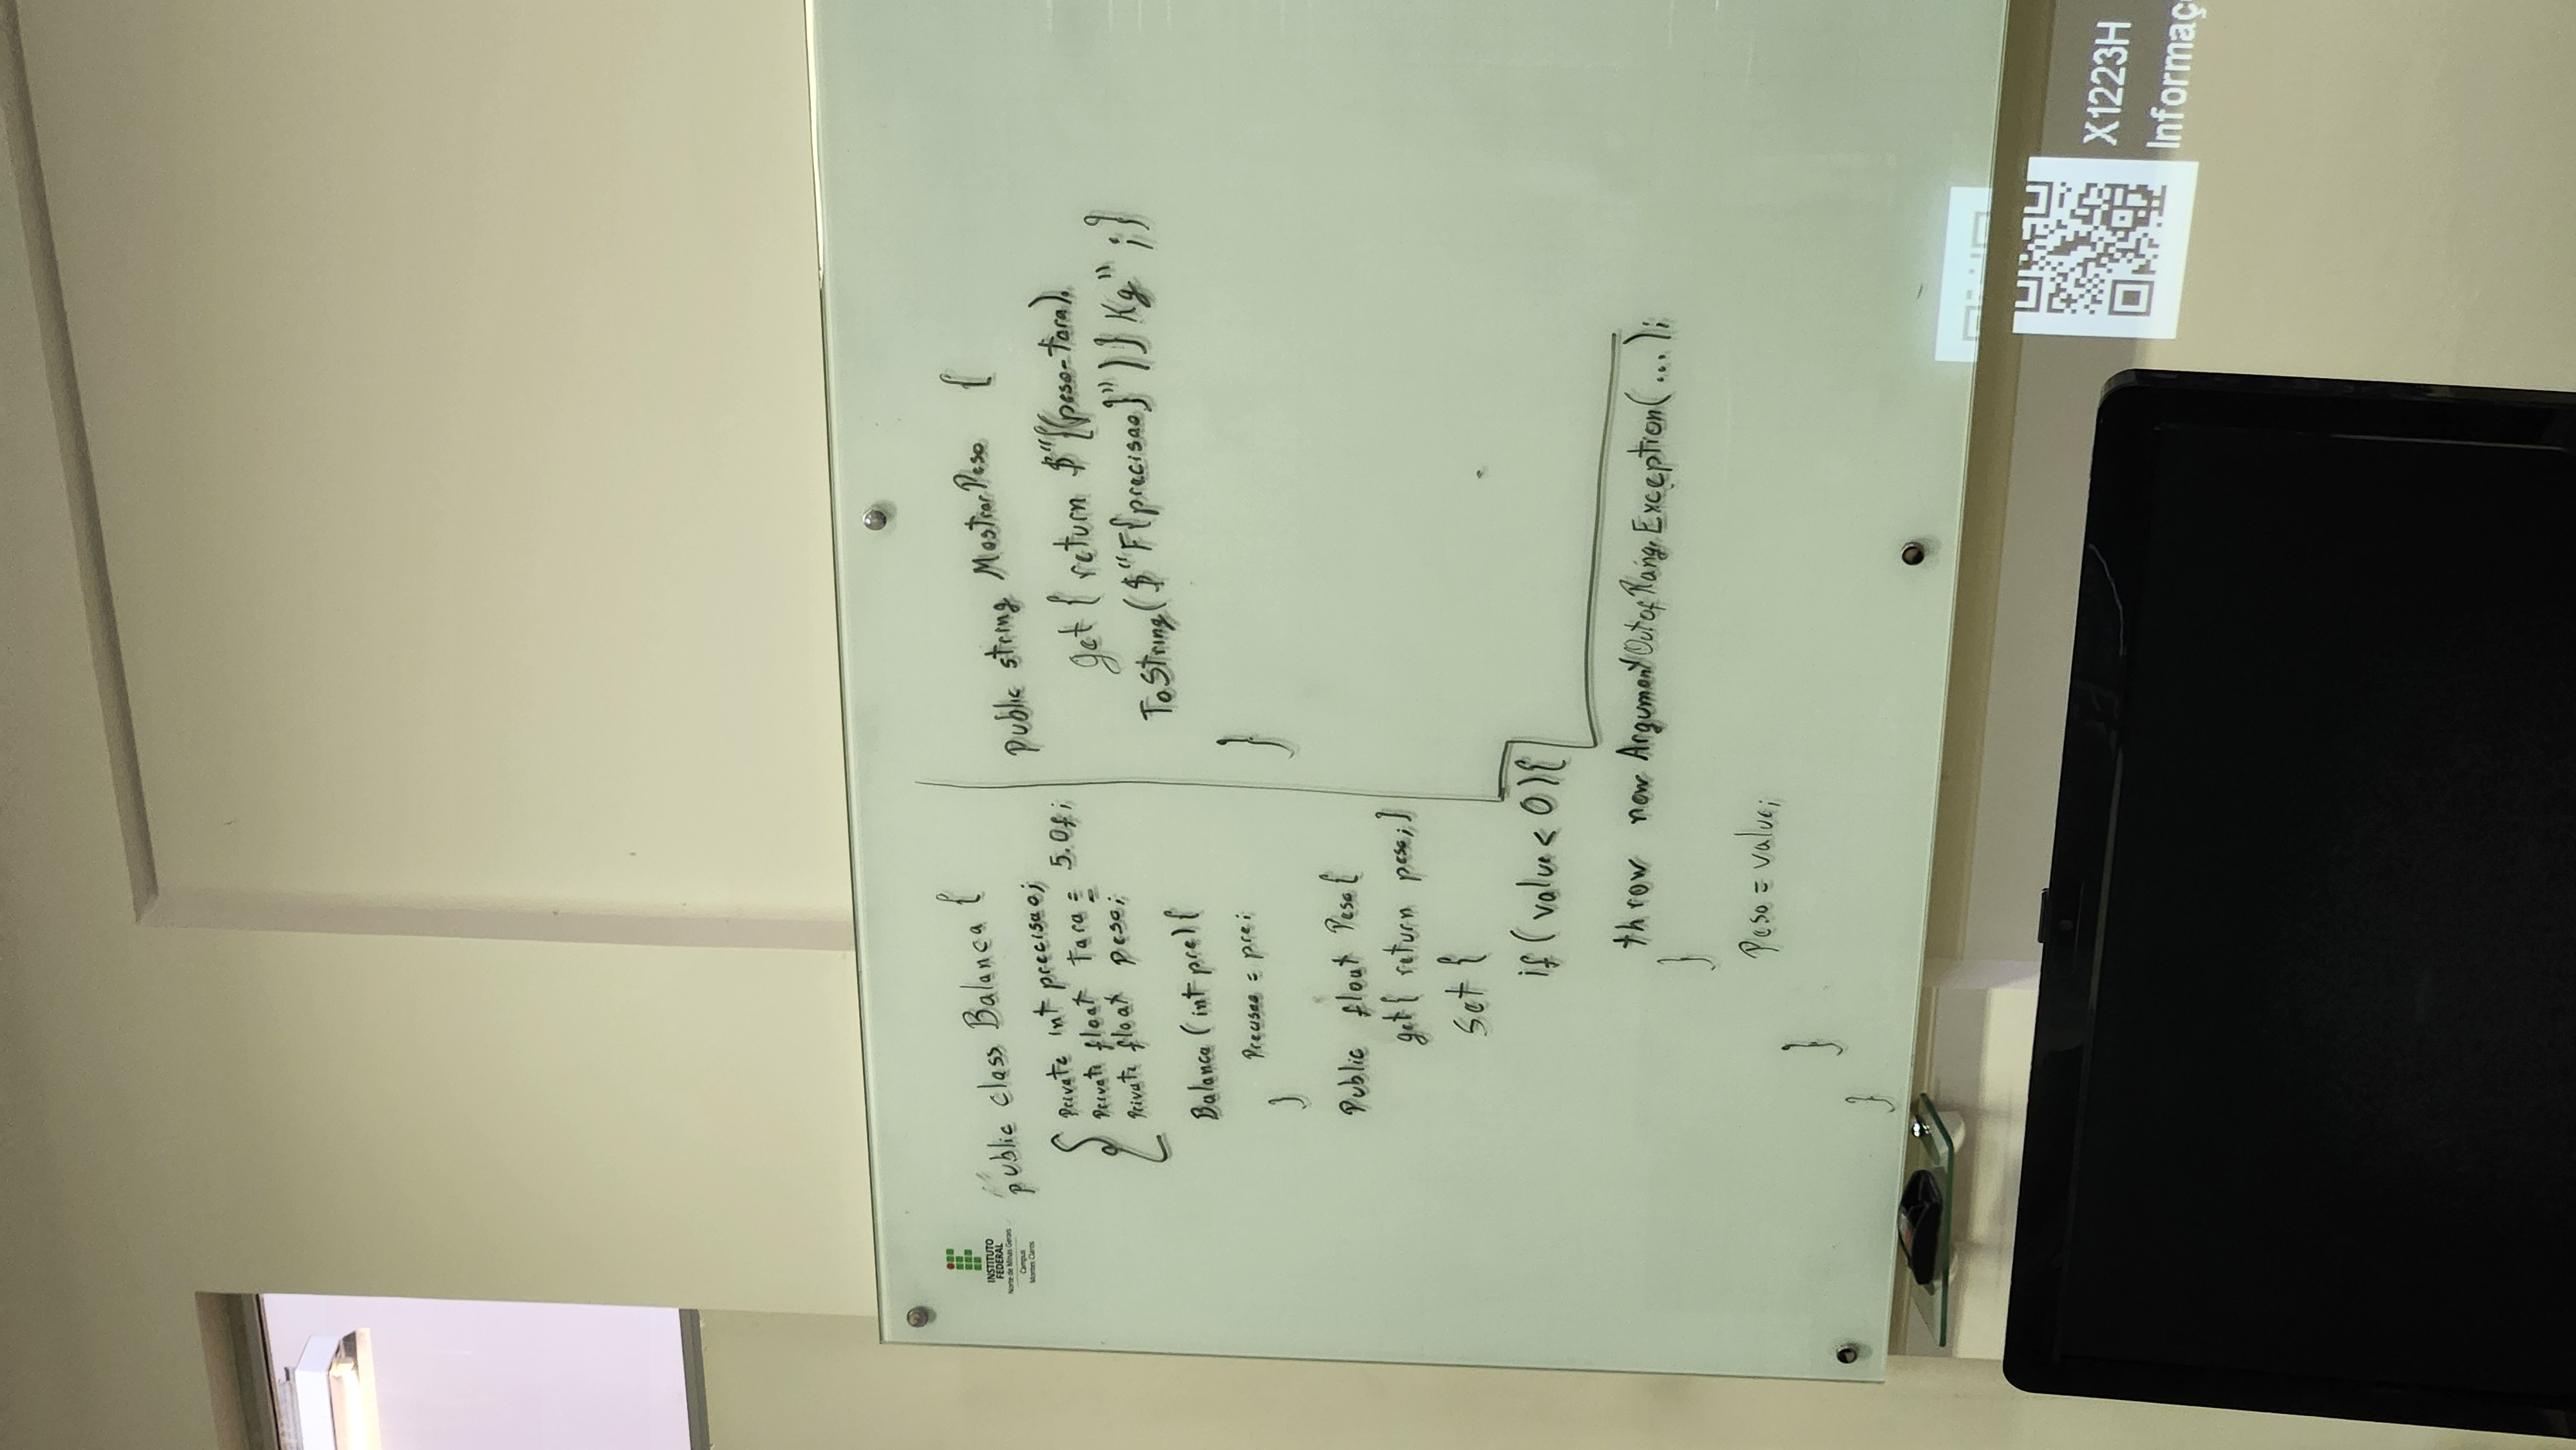 INSTITUTO
FEDERAL
Norte de Minas Gerais
Campus
Montes Claros
public class Balanca {
Private int precisao;
Private float tara = 5.0f;
Private float peso;
Balanca (int pre) {
Precisao = pre;
}
Public float Peso {
get { return peso; }
Set {
if ( value < 0 ) {
throw new ArgumentOutofRange Exception(...);
}
Peso = value;
}
}
Public string MostrarPeso {
get { return $"{(peso-tara).
ToString($"F{precisao}")} Kg" ; }
}
X1223H
Informaç